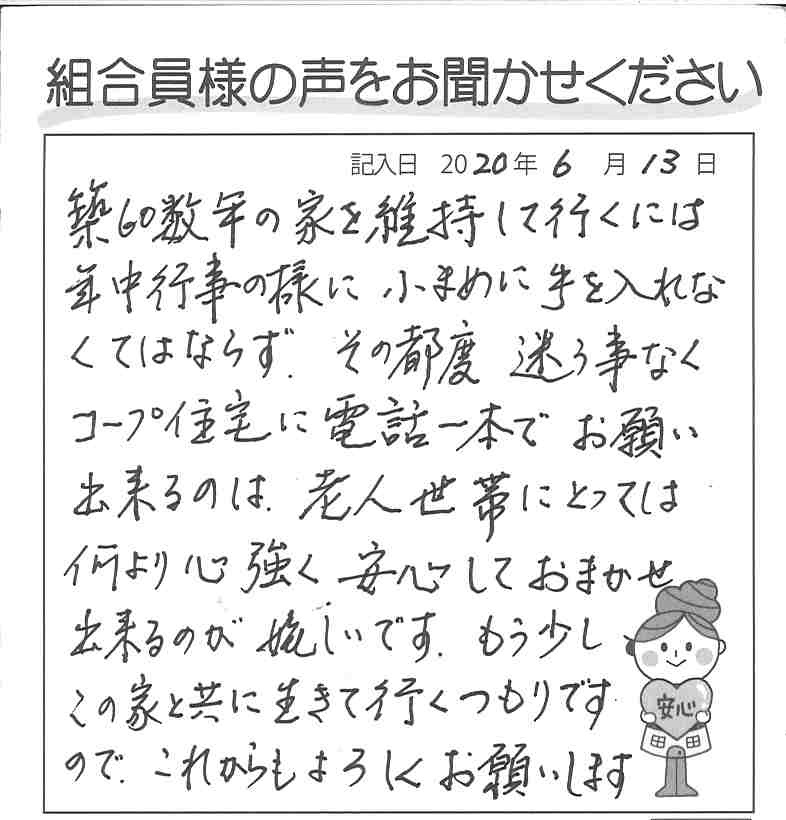 組合員様の声をお聞かせください
記入日 2020年 6 月 13 日
築60数年の家を維持して行くには
年中行事の様に 小まめに手を入れな
くてはならず、その都度 迷う事なく
コープ住宅に電話一本でお願い
出来るのは、老人世帯にとっては
何より心強く 安心しておまかせ
出来るのが嬉しいです。もう少し
この家と共に生きて行くつもりです
ので、これからもよろしくお願いします
安心